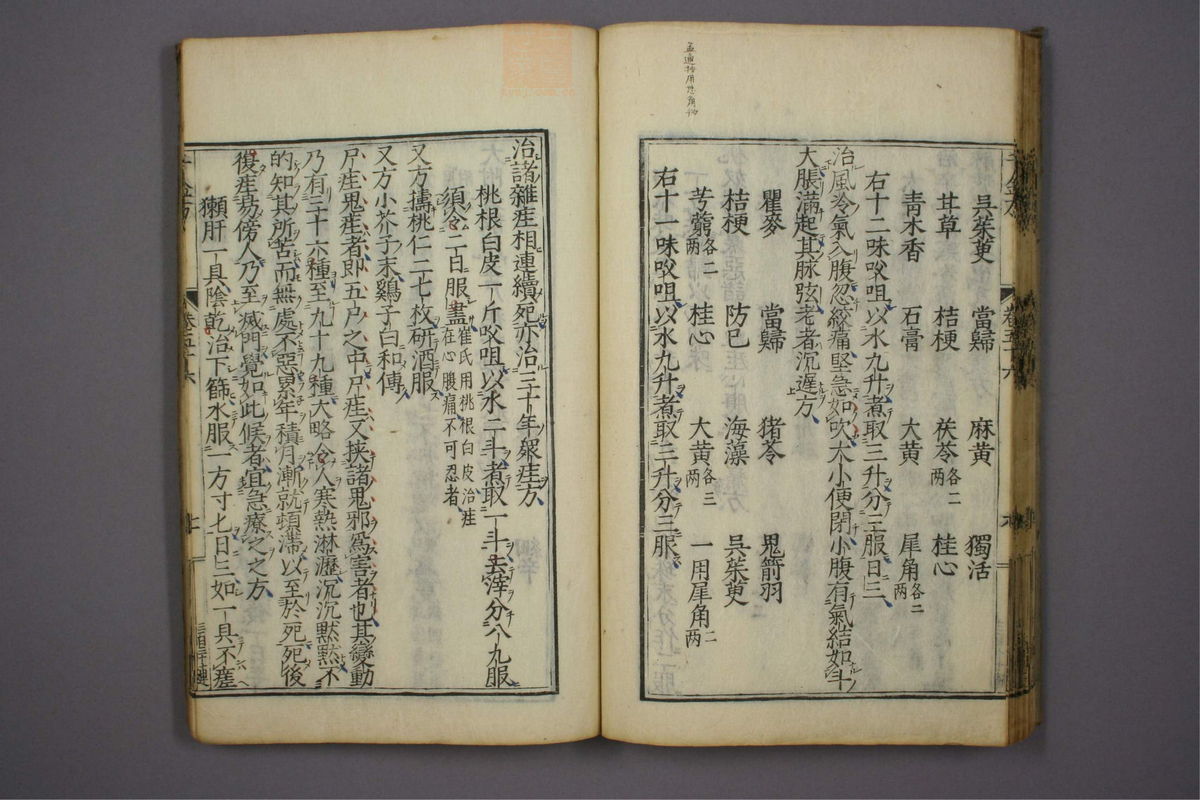 吳茱萸 當歸 麻黃 獨活
甘草 桔梗 茯苓各二兩 桂心
青木香 石膏 大黃 犀角各二兩
右十二味㕮咀以水九升煮取三升分三服日三
治風冷氣入腹忽絞痛堅急如吹大小便閉小腹有氣結如斗
大脹滿起其脉弦老者沉遲方
瞿麥 當歸 猪苓 鬼箭羽
桔梗 防已 海藻 吳茱萸
芎藭各二兩 桂心 大黃各三兩 一用犀角二兩
右十一味㕮咀以水九升煮取三升分三服
治諸雜疰相連續死亦治三十年衆疰方
桃根白皮一斤㕮咀以水二斗煮取一斗去滓分八九服
須令二日服盡崔氏用桃根白皮治疰在心腹痛不可忍者
又方擣桃仁二七枚研酒服
又方小芥子末鷄子白和傅
尸疰鬼疰者即五尸之中尸疰又挾諸鬼邪爲害者也其變動
乃有三十六種至九十九種大略令人寒熱淋瀝沉沉黙黙不
的知其所苦而無處不惡累年積月漸就頓滯以至於死死後
復疰易傍人乃至滅門覺如此候者宜急療之之方
獺肝一具陰乾治下篩水服一方寸匕日三如一具不瘥